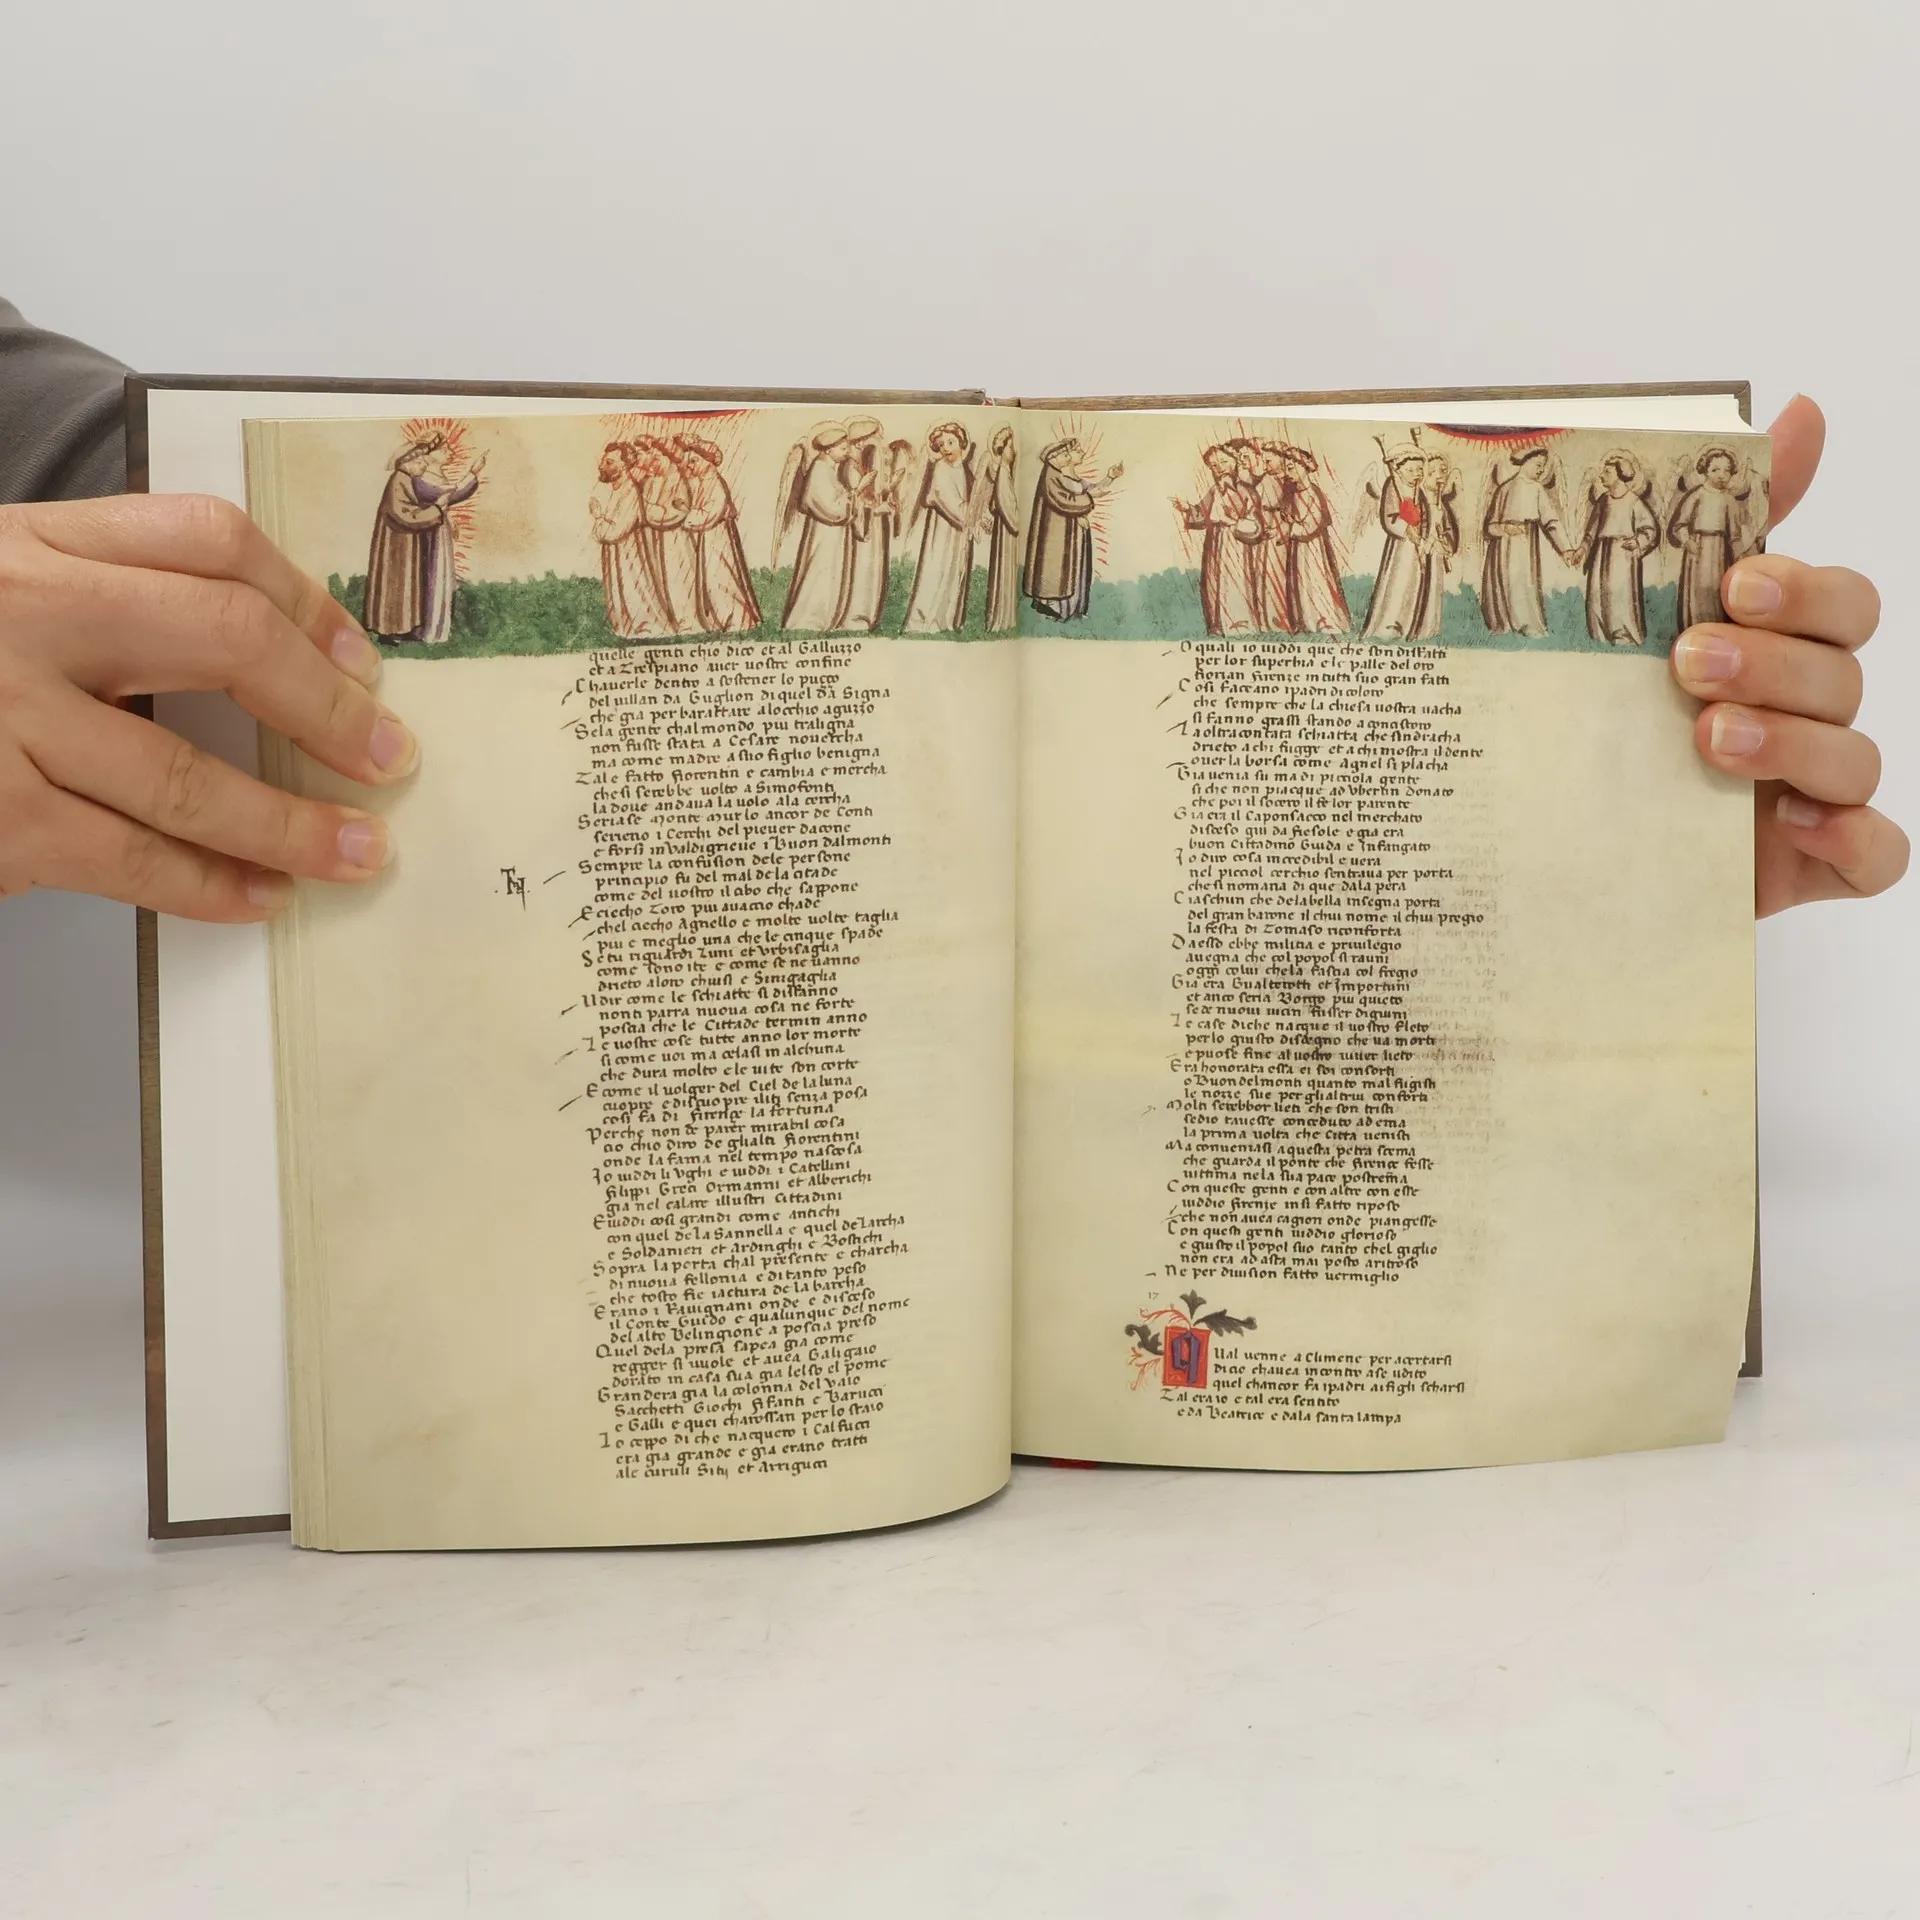 quelle genti chio dico et al Galluzzo
et a Trespiano auer uostre confine
Chauerle dentro a sostener lo puço
del uillan da Guglion di quel da Signa
che gia per barattare a locchio aguzzo
Se la gente chal mondo piu traligna
non fusse stata a Cesare nouercha
ma come madre a suo figlio benigna
Tal e fatto fiorentin e cambia e mercha
che si serebbe uolto a Simofonti
la doue andaua lauolo ala cercha
Seriase Monte Murlo ancor de Conti
serieno i Cerchi del piouer dacone
e forsi in Valdigrieue i Buon dalmonti
Sempre la confusion dele persone
principio fu del mal de la citade
come del uostro il cibo che sappone
E ciecho Toro piu auaccio chade
chel ciecho Agnello e molte uolte taglia
piu e meglio una che le cinque spade
Se tu riguardi Luni et Vrbisaglia
come sono ite e come se ne uanno
drieto a loro chiusi e Sinigaglia
Udir come le schiatte si disfanno
non ti parra nuoua cosa ne forte
poscia che le Cittade termin anno
Le uostre cose tutte anno lor morte
si come uoi ma celasi in alchuna
che dura molto e le uite son corte
E come il uolger del Ciel de la luna
cuopre e discuopre i liti senza posa
cosi fa di firençe la fortuna
Perche non de parer mirabil cosa
cio chio diro de gli alti fiorentini
onde la fama nel tempo nascosa
Io uiddi li Vghi e uiddi i Catellini
filippi Greci Ormanni et Alberichi
gia nel calare illustri Cittadini
E uiddi cosi grandi come antichi
con quel de la Sannella e quel de Larcha
e Soldanieri et Ardinghi e Bostichi
Sopra la porta chal presente e charcha
di nuoua fellonia e di tanto peso
che tosto fie iactura de la barcha
Erano i Rauignani onde e disceso
il Conte Guido e qualunque del nome
del alto Belingione a poscia preso
Quel dela presa sapea gia come
regger si uuole et auea Galigaio
dorato in casa sua gia lelso el pome
Grandera gia la colonna del uaio
Sacchetti Giochi fifanti e Barucci
e Galli e quei charossan per lo staio
Lo ceppo di che nacquero i Calfucci
era gia grande e gia erano tratti
ale curuli Sitij et Arrigucci
O quali io uiddi que che son disfatti
per lor superbia e le palle del oro
fiorian firenze in tutti suo gran fatti
Cosi faceano i padri di coloro
che sempre che la chiesa uostra uacha
si fanno grassi stando a concistoro
La oltracontata schiatta che sindracha
drieto a chi fugge et a chi mostra il dente
ouer la borsa come agnel si placha
Gia uenia su ma di picciola gente
si che non piacque ad Vbertin donato
che poi il socero il fe lor parente
Gia era il Caponsacco nel merchato
disceso giu da fiesole e gia era
buon Cittadino Guida e Infangato
Io diro cosa incredibil e uera
nel picciol cerchio sentraua per porta
che si nomaua di que dala pera
Ciaschun che dela bella insegna porta
del gran barone il chui nome il chui pregio
la festa di Tomaso riconforta
Da esso ebbe militia e priuilegio
auegna che col popol si rauni
oggi colui che la fascia col fregio
Gia era Gualterotti et Importuni
et anco seria Borgo piu quieto
se de nuoui uicin fusser digiuni
Le case di che nacque il uostro fleto
per lo giusto disdegno che ua morti
e puose fine al uostro uiuer lieto
Era honorata essa ei soi consorti
o Buondelmonti quanto mal fugisti
le nozze sue per gli altrui conforti
Molti serebbor lieti che son tristi
se dio tauesse conceduto ad ema
la prima uolta che citta uenisti
Ma conueniasi a questa petra scema
che guarda il ponte che firençe fesse
uittima nela sua pace postrema
Con queste genti e con altre con esse
uiddio firenze in si fatto riposo
che non auea cagion onde piangesse
Con questi genti uiddio glorioso
e giusto il popol suo tanto chel giglio
non era ad asta mai posto a ritroso
Ne per diuision fatto uermiglio
17
Qual uenne a Climene per acertarsi
di cio chauea incontro a se udito
quel chancor fa i padri ai figli scharsi
Tal era io e tal era sentito
e da Beatrice e dala santa lampa